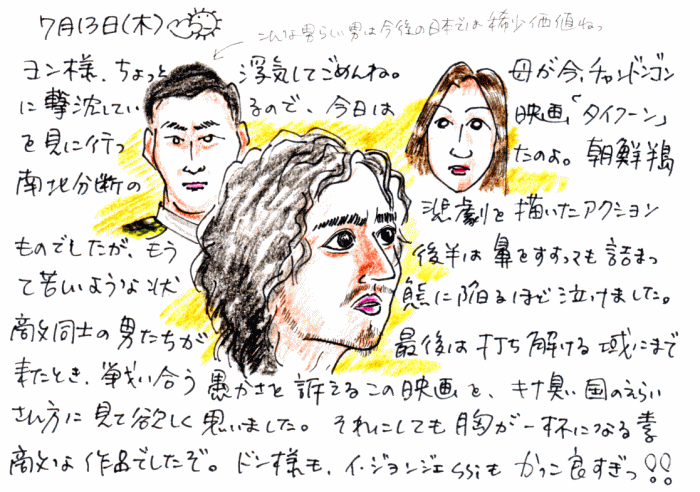 7月13日(木)
こんな男らしい男は今後の日本では稀少価値ねっ
ヨン様、ちょっと浮気してごめんね。母が今、チャンドンゴン
に撃沈しているので、今日は映画「タイフーン」
を見に行ったのよ。朝鮮半島
南北分断の悲劇を描いたアクション
ものでしたが、もう後半は鼻をすすっても詰まっ
て苦しいような状態に陥るほど泣けました。
敵同士の男たちが最後は打ち解ける域にまで
来たとき、戦い合う愚かさを訴えるこの映画を、キナ臭い国のえらい
さん方に見て欲しく思いました。それにしても胸が一杯になる素
敵な作品でしたぞ。ドン様も、イ・ジョンジェssiもかっこ良すぎっ!!